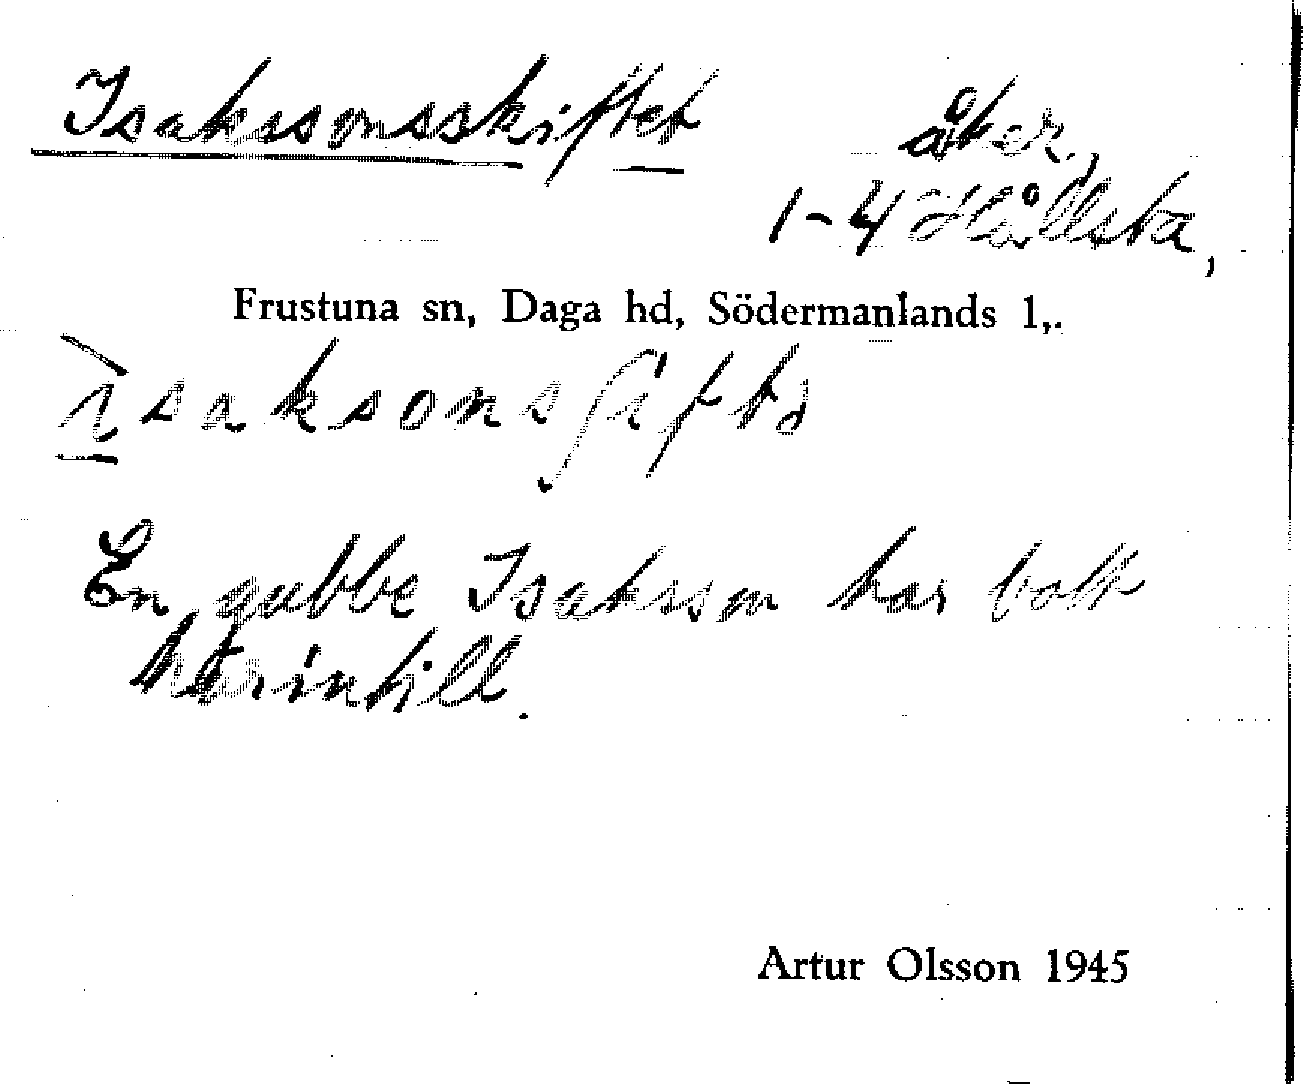 Isakssonsskiftet
åker,
1-4 Hållsta,
Frustuna sn, Daga hd, Södermanlands l,.
En gubbe Isaksson har bott
intill.
Artur Olsson 1945